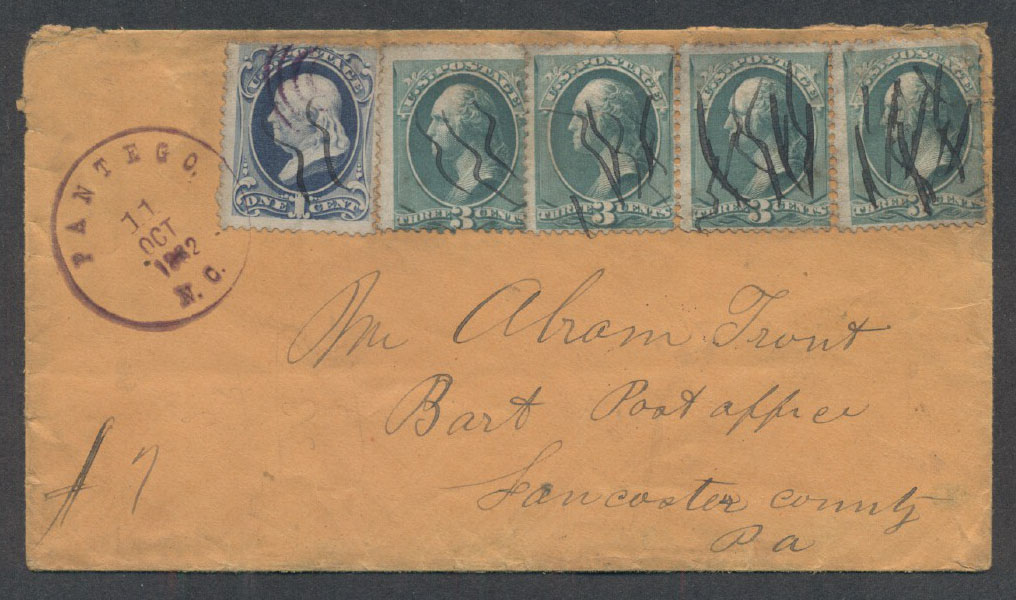 U.S. POSTAGE
ONE 1 CENT
U.S. POSTAGE
THREE 3 CENTS
U.S. POSTAGE
THREE 3 CENTS
U.S. POSTAGE
THREE 3 CENTS
U.S. POSTAGE
THREE 3 CENTS
PANTEGO
11
OCT
1882
N. C.
Mr Abram Trout
Bart Post office
Lancaster county
Pa
# 7